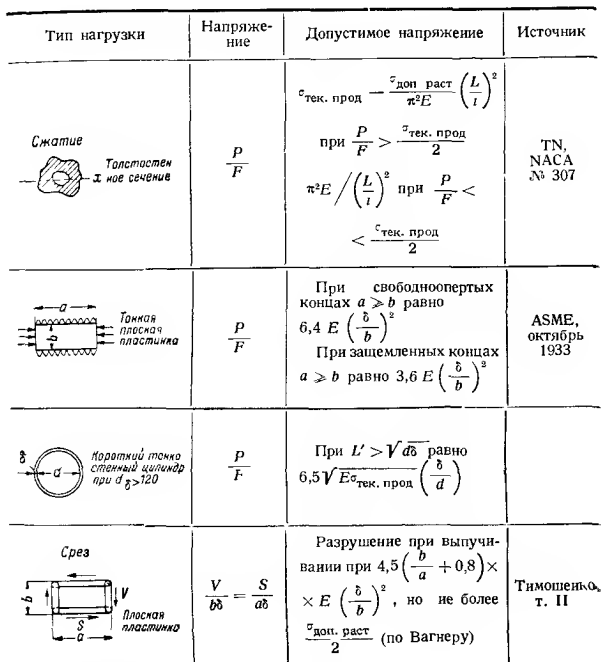 Тип нагрузки
Напряже-
ние
Допустимое напряжение
Источник
Сжатие
Толстостен
x ное сечение
P/F
σтек. прод — σдоп раст/π²E (L/i)²
при P/F > σтек. прод/2
π²E / (L/i)² при P/F <
< σтек. прод/2
TN,
NACA
№ 307
a
b
Тонкая
плоская
пластинка
P/F
При свободноопертых
концах a ⩾ b равно
6,4 E (δ/b)²
При защемленных концах
a ⩾ b равно 3,6 E (δ/b)²
ASME,
октябрь
1933
δ
d
Короткий тонко
стенный цилиндр
при d/δ>120
P/F
При L' > √dδ равно
6,5√Eσтек. прод (δ/d)
Срез
b
V
S
a
Плоская
пластинка
V/bδ = S/aδ
Разрушение при выпучи-
вании при 4,5 (b/a + 0,8) ×
× E (δ/b)², но не более
σдоп. раст/2 (по Вагнеру)
Тимошенко,
т. II